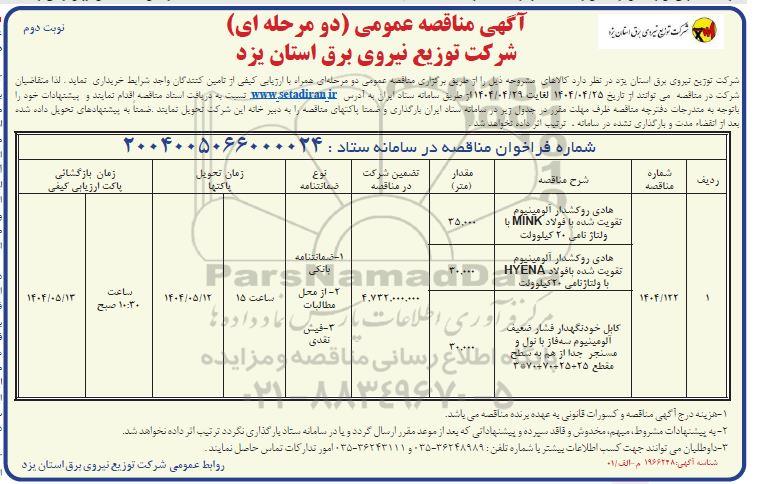 نوبت دوم
آگهی مناقصه عمومی (دو مرحله ای)
شرکت توزیع نیروی برق استان یزد
شرکت توزیع نیروی برق استان یزد
شرکت توزیع نیروی برق استان یزد در نظر دارد کالاهای مشروحه ذیل را از طریق برگزاری مناقصه عمومی دو مرحله‌ای همراه با ارزیابی کیفی از تامین کنندگان واجد شرایط خریداری نماید . لذا متقاضیان
شرکت در مناقصه می توانند از تاریخ ۱۴۰۴/۰۴/۲۵ لغایت ۱۴۰۴/۰۴/۲۹ از طریق سامانه ستاد ایران به آدرس www.setadiran.ir نسبت به دریافت اسناد مناقصه اقدام نمایند و پیشنهادات خود را
باتوجه به مندرجات دفترچه مناقصه ظرف مهلت مقرر در جدول زیر در سامانه ستاد ایران بارگذاری و ضمنا پاکتهای مناقصه را به دبیر خانه این شرکت تحویل نمایند .ضمناً به پیشنهادهای تحویل داده شده
بعد از انقضاء مدت و بارگذاری نشده در سامانه ، ترتیب اثر داده نخواهد شد.
شماره فراخوان مناقصه در سامانه ستاد : ۲۰۰۴۰۰۵۰۶۶۰۰۰۰۲۴
ردیف
شماره مناقصه
شرح مناقصه
مقدار (متر)
تضمین شرکت در مناقصه
نوع ضمانتنامه
زمان تحویل پاکتها
زمان بازگشائی پاکت ارزیابی کیفی
۱
۱۴۰۴/۱۲۲
هادی روکشدار آلومینیوم
تقویت شده با فولاد MINK با
ولتاژ نامی ۲۰ کیلوولت
۳۵,۰۰۰
هادی روکشدار آلومینیوم
تقویت شده بافولاد HYENA
با ولتاژنامی ۲۰کیلوولت
۳۰,۰۰۰
کابل خودنگهدار فشار ضعیف
آلومینیوم سه‌فاز با نول و
مسنجر جدا از هم به سطح
مقطع ۲۵+۲۵+۷۰+۷۰*۳
۳۰,۰۰۰
۴,۷۳۲,۰۰۰,۰۰۰
۱-ضمانتنامه
بانکی
۲- از محل
مطالبات
۳-فیش
نقدی
ساعت ۱۵
۱۴۰۴/۰۵/۱۲
ساعت
۱۰:۳۰ صبح
۱۴۰۴/۰۵/۱۳
ParsNamadData
مرکز فرآوری اطلاعات پارس نماد داده ها
پایگاه اطلاع رسانی مناقصه و مزایده
۰۲۱-۸۸۳۴۹۶۷۰-۵
۱-هزینه درج آگهی مناقصه و کسورات قانونی به عهده برنده مناقصه می باشد.
۲-به پیشنهادات مشروط، مبهم، مخدوش و فاقد سپرده و پیشنهاداتی که بعد از موعد مقرر ارسال گردد و یا در سامانه ستاد بارگذاری نگردد ترتیب اثر داده نخواهد شد.
۳-داوطلبان می توانند جهت کسب اطلاعات بیشتر با شماره تلفن : ۳۶۲۴۸۹۸۹-۰۳۵ و ۳۶۲۴۳۱۱۱-۰۳۵ امور تدارکات تماس حاصل نمایند .
شناسه آگهی: ۱۹۶۶۲۴۸ م-الف/۰۱
روابط عمومی شرکت توزیع نیروی برق استان یزد